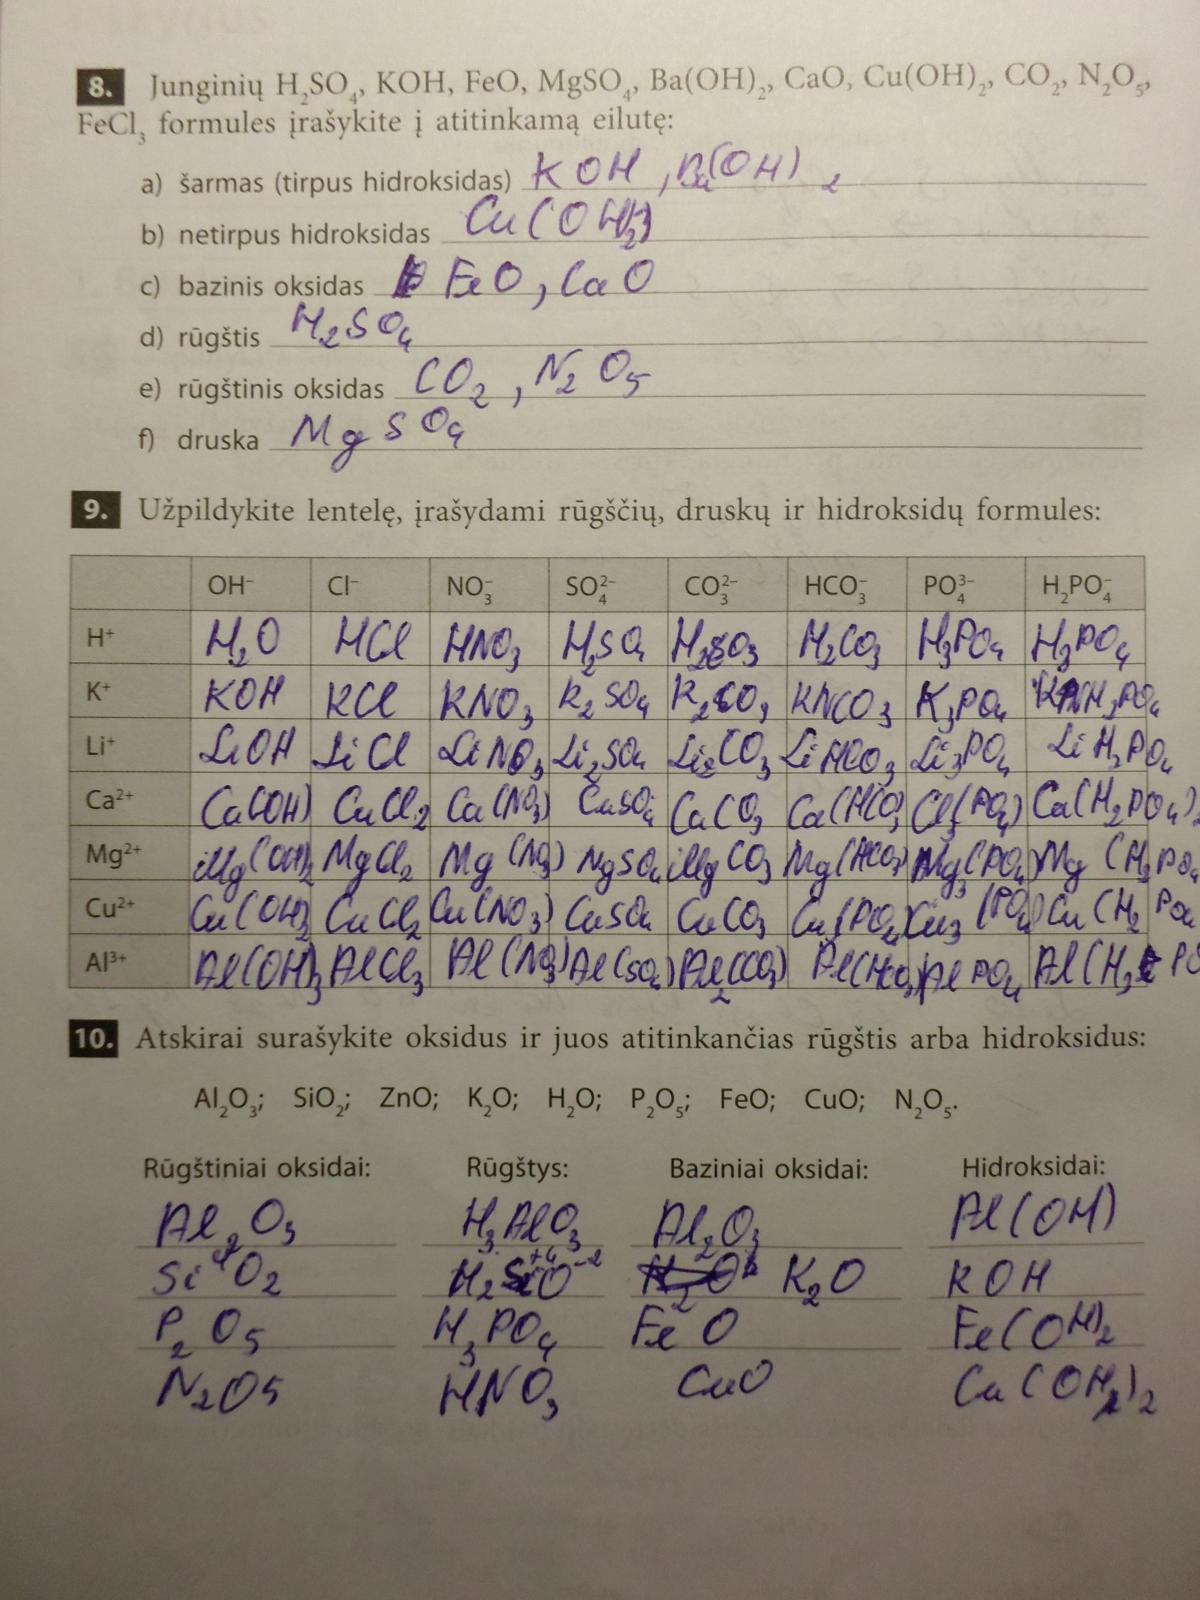 8. Junginių H₂SO₄, KOH, FeO, MgSO₄, Ba(OH)₂, CaO, Cu(OH)₂, CO₂, N₂O₅,
FeCl₃ formules įrašykite į atitinkamą eilutę:
a) šarmas (tirpus hidroksidas) KOH, Ba(OH)₂
b) netirpus hidroksidas Cu(OH)₂
c) bazinis oksidas FeO, CaO
d) rūgštis H₂SO₄
e) rūgštinis oksidas CO₂, N₂O₅
f) druska MgSO₄
9. Užpildykite lentelę, įrašydami rūgščių, druskų ir hidroksidų formules:
OH⁻ Cl⁻ NO₃⁻ SO₄²⁻ CO₃²⁻ HCO₃⁻ PO₄³⁻ H₂PO₄⁻
H⁺ H₂O HCl HNO₃ H₂SO₄ H₂CO₃ H₂CO₃ H₃PO₄ H₃PO₄
K⁺ KOH KCl KNO₃ K₂SO₄ K₂CO₃ KHCO₃ K₃PO₄ KH₂PO₄
Li⁺ LiOH LiCl LiNO₃ Li₂SO₄ Li₂CO₃ LiHCO₃ Li₃PO₄ LiH₂PO₄
Ca²⁺ Ca(OH) CaCl₂ Ca(NO₃) CaSO₄ CaCO₃ Ca(HCO₃ (PO₄) Ca(H₂PO₄)₂
Mg²⁺ Mg(OH)₂ MgCl₂ Mg(NO₃) MgSO₄ MgCO₃ Mg(HCO₃) Mg₃(PO₄) Mg(H₂PO₄
Cu²⁺ Cu(OH)₂ CuCl₂ Cu(NO₃) CuSO₄ CuCO₃ Cu₃(PO₄) Cu(H₂PO₄
Al³⁺ Al(OH)₃ AlCl₃ Al(NO₃) Al(SO₄) Al₂(CO₃) Al(HCO₃) AlPO₄ Al(H₂PO
10. Atskirai surašykite oksidus ir juos atitinkančias rūgštis arba hidroksidus:
Al₂O₃; SiO₂; ZnO; K₂O; H₂O; P₂O₅; FeO; CuO; N₂O₅.
Rūgštiniai oksidai: Rūgštys: Baziniai oksidai: Hidroksidai:
Al₂O₃ H₃AlO₃ Al₂O₃ Al(OH)
Si⁺⁴O₂ H₂Si⁺⁴O⁻² K₂O KOH
P₂O₅ H₃PO₄ FeO Fe(OH)₂
N₂O₅ HNO₃ CuO Cu(OH)₂